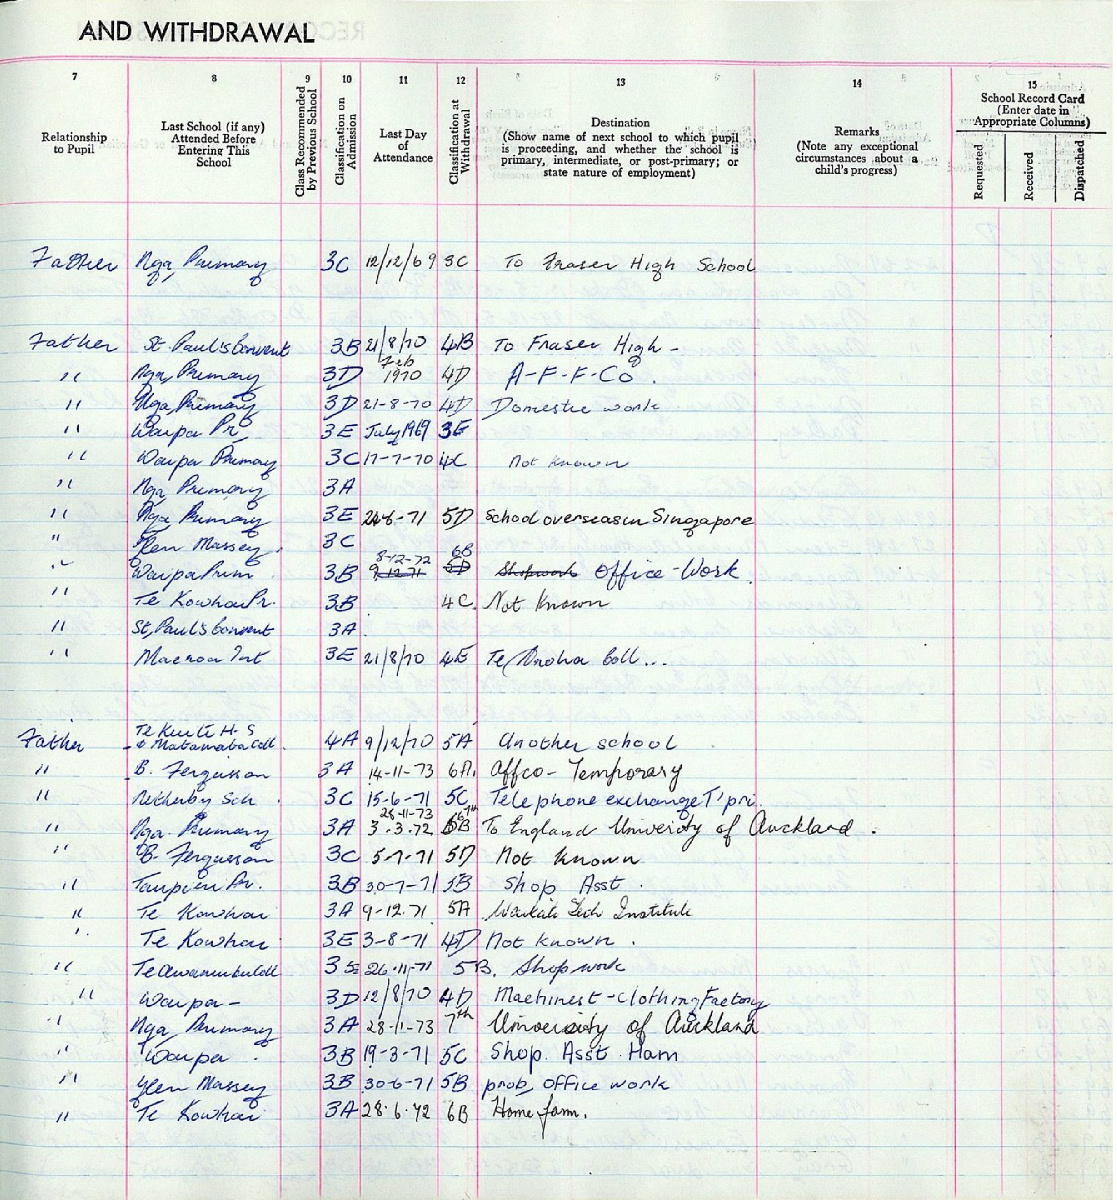 AND WITHDRAWAL
7 8 9 10 11 12 13 14 15
Relationship to Pupil
Last School (if any) Attended Before Entering This School
Class Recommended by Previous School
Classification on Admission
Last Day of Attendance
Classification at Withdrawal
Destination (Show name of next school to which pupil is proceeding, and whether the school is primary, intermediate, or post-primary; or state nature of employment)
Remarks (Note any exceptional circumstances about a child's progress)
School Record Card (Enter date in Appropriate Columns)
Requested Received Dispatched
Father Nga, Primary 3C 12/12/69 3C To Fraser High School
Father St. Paul's Convent 3B 21/8/70 4B To Fraser High -
" Nga, Primary 3D Feb 1970 4D A-F-F-Co.
" Nga, Primary 3D 21-8-70 4D Domestic work
" Waipa Pr 3E July 1969 3E
" Waipa Primary 3C 17-7-70 4C Not known
" Nga, Primary 3A
" Nga Primary 3E 24-6-71 5D School overseas in Singapore
" Glen Massey. 3C
" Waipa Prim 3B 8-12-72 9-12-71 6B 5D Shopwork Office-Work
" Te Kowhai Pr. 3B 4C. Not Known
" St, Paul's Convent 3A.
" Maeroa Int 3E 21/8/70 4E Te Aroha Coll...
Father Te Kuiti H.S & Matamata Coll. 4A 9/12/70 5A Another school
" B. Fergusson 3A 14-11-73 6A. Affco- Temporary
" Netherby Sch. 3C 15-6-71 5C Telephone exchange T'pri.
" Nga. Primary 3A 28-11-73 3-3-72 7th 5B To England University of Auckland.
" B. Fergusson 3C 5-7-71 5D Not known
" Taupiri Pr. 3B 30-7-71 5B Shop Asst.
" Te Kowhai 3A 9-12.71 5A Waikato Tech Institute
" Te Kowhai 3E 3-8-71 4D Not known.
" Te Awamutu Coll 3E 26-11-71 5B. Shop work
" Waipa- 3D 12/8/70 4D Machinest-Clothing Factory
" Nga, Primary 3A 28-11-73 7th University of Auckland
" Waipa. 3B 19-3-71 5C Shop. Asst. Ham
" Glen Massey 3B 30-6-71 5B prob, office work
" Te Kowhai 3A 28.6.72 6B Home farm.